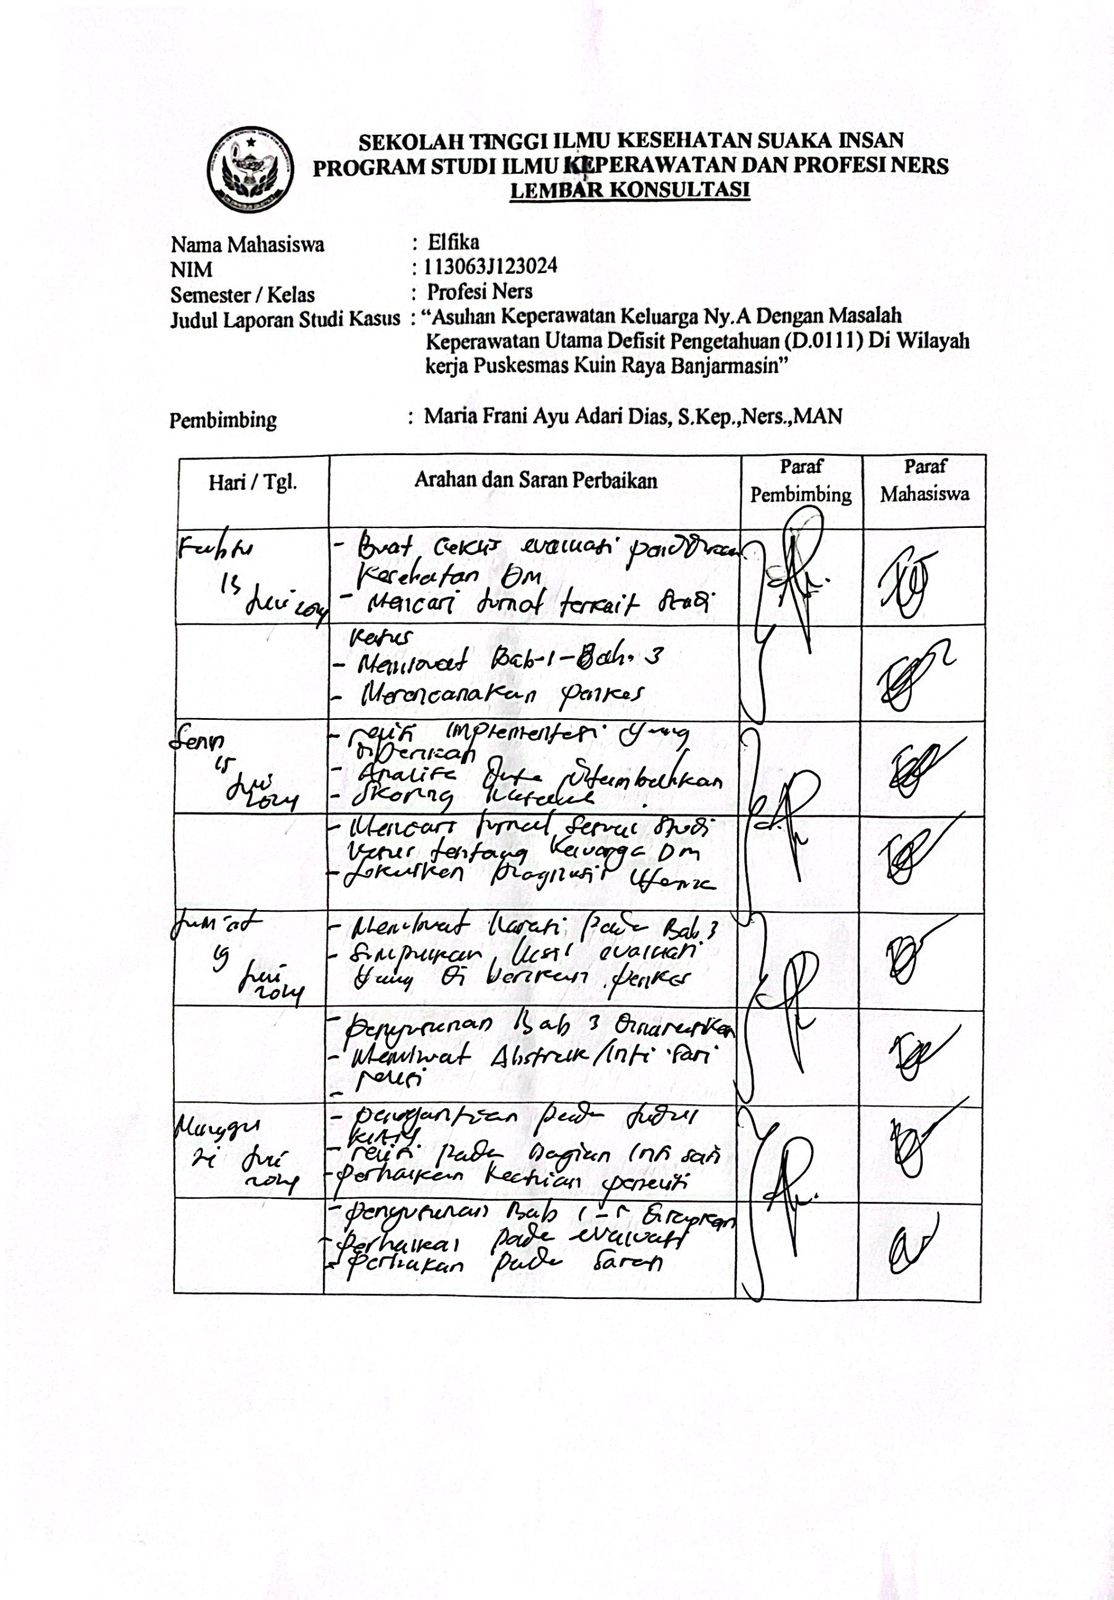 SEKOLAH TINGGI ILMU KESEHATAN SUAKA INSAN
PROGRAM STUDI ILMU KEPERAWATAN DAN PROFESI NERS
LEMBAR KONSULTASI
Nama Mahasiswa : Elfika
NIM : 113063J123024
Semester / Kelas : Profesi Ners
Judul Laporan Studi Kasus : “Asuhan Keperawatan Keluarga Ny.A Dengan Masalah
Keperawatan Utama Defisit Pengetahuan (D.0111) Di Wilayah
kerja Puskesmas Kuin Raya Banjarmasin”
Pembimbing : Maria Frani Ayu Adari Dias, S.Kep.,Ners.,MAN
Hari / Tgl.
Arahan dan Saran Perbaikan
Paraf
Pembimbing
Paraf
Mahasiswa
13
Juli 2024
- Buat Ceklis evaluasi pendidikan
kesehatan DM
- Mencari Jurnal terkait Studi
kasus
- Membuat Bab-1-Bab. 3
- Merencanakan penkes
Senin
15
Juli
2024
- revisi implementasi yang
diberikan
- Analisa data ditambahkan
- Skoring
- Mencari Jurnal Sesuai Studi
kasus tentang keluarga DM
- Fokuskan Diagnosis Utama
Jum'at
19
Juli
2024
- Membuat Narasi pada Bab 3
- Simpulkan hasil evaluasi
yang di berikan penkes
- penyusunan Bab 3
- Membuat Abstrak/inti sari
- revisi
-
Minggu
21 Juli
2024
- penggantian pada Judul
- revisi pada bagian inti sari
- perhatikan keaslian peneliti
- penyusunan Bab 1-5
- perbaikan pada evaluasi
- perbaikan pada Saran